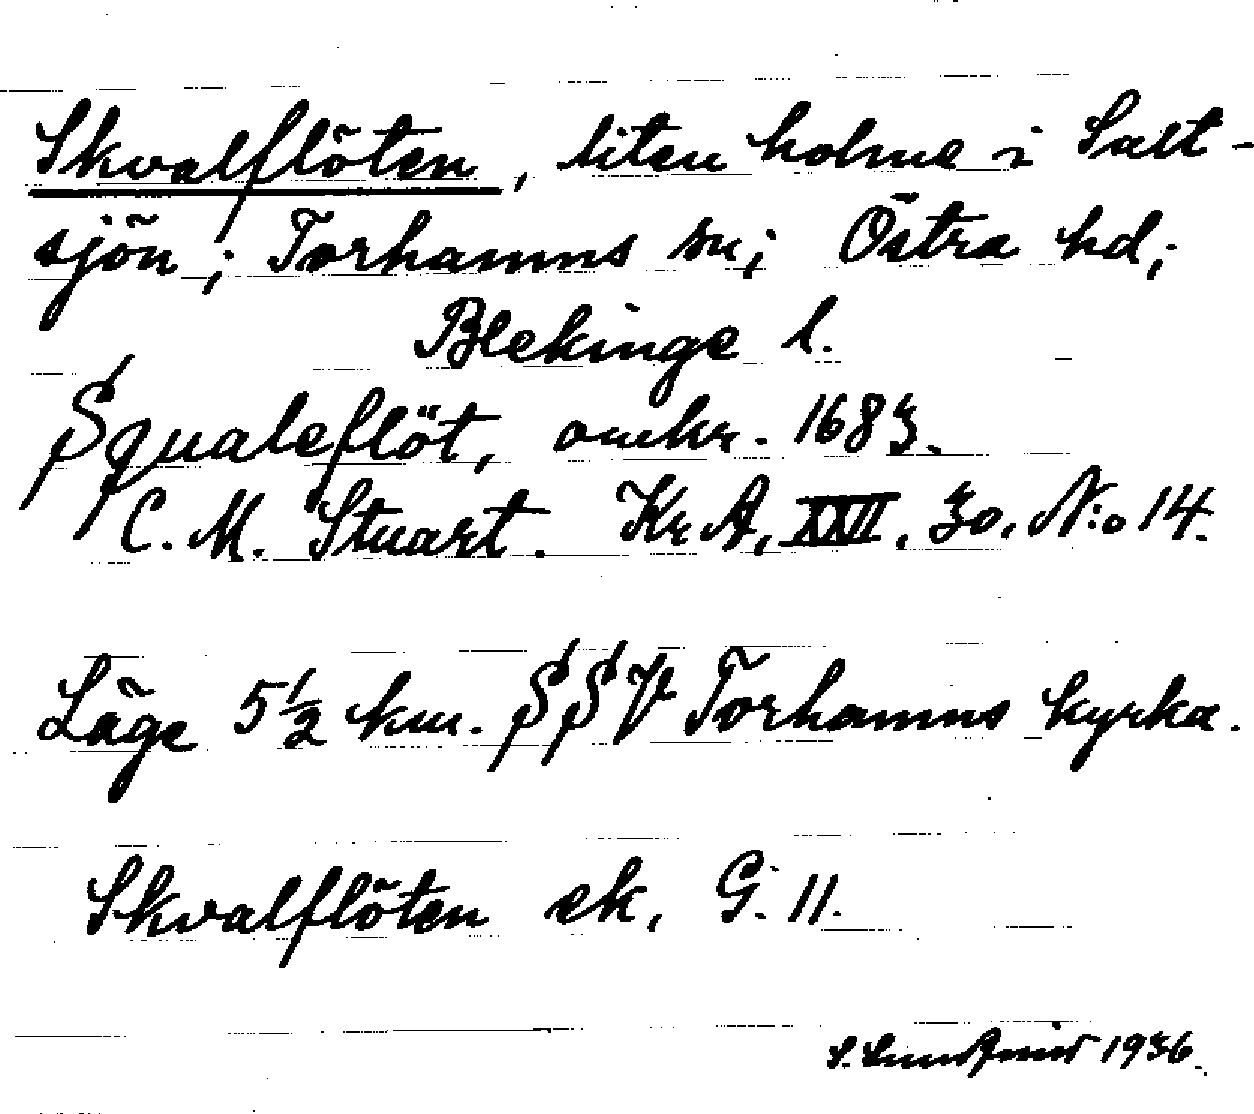 Skvalflöten, liten holme i Salt-
sjön; Torhamns sn; Östra hd;
Blekinge l.
Squaleflöt, omkr. 1683.
C. M. Stuart. Kr A, XXII, 30. N:o 14.
Läge 5 1/2 km. SSV Torhamns kyrka.
Skvalflöten ek, G. 11.
S. 1936.